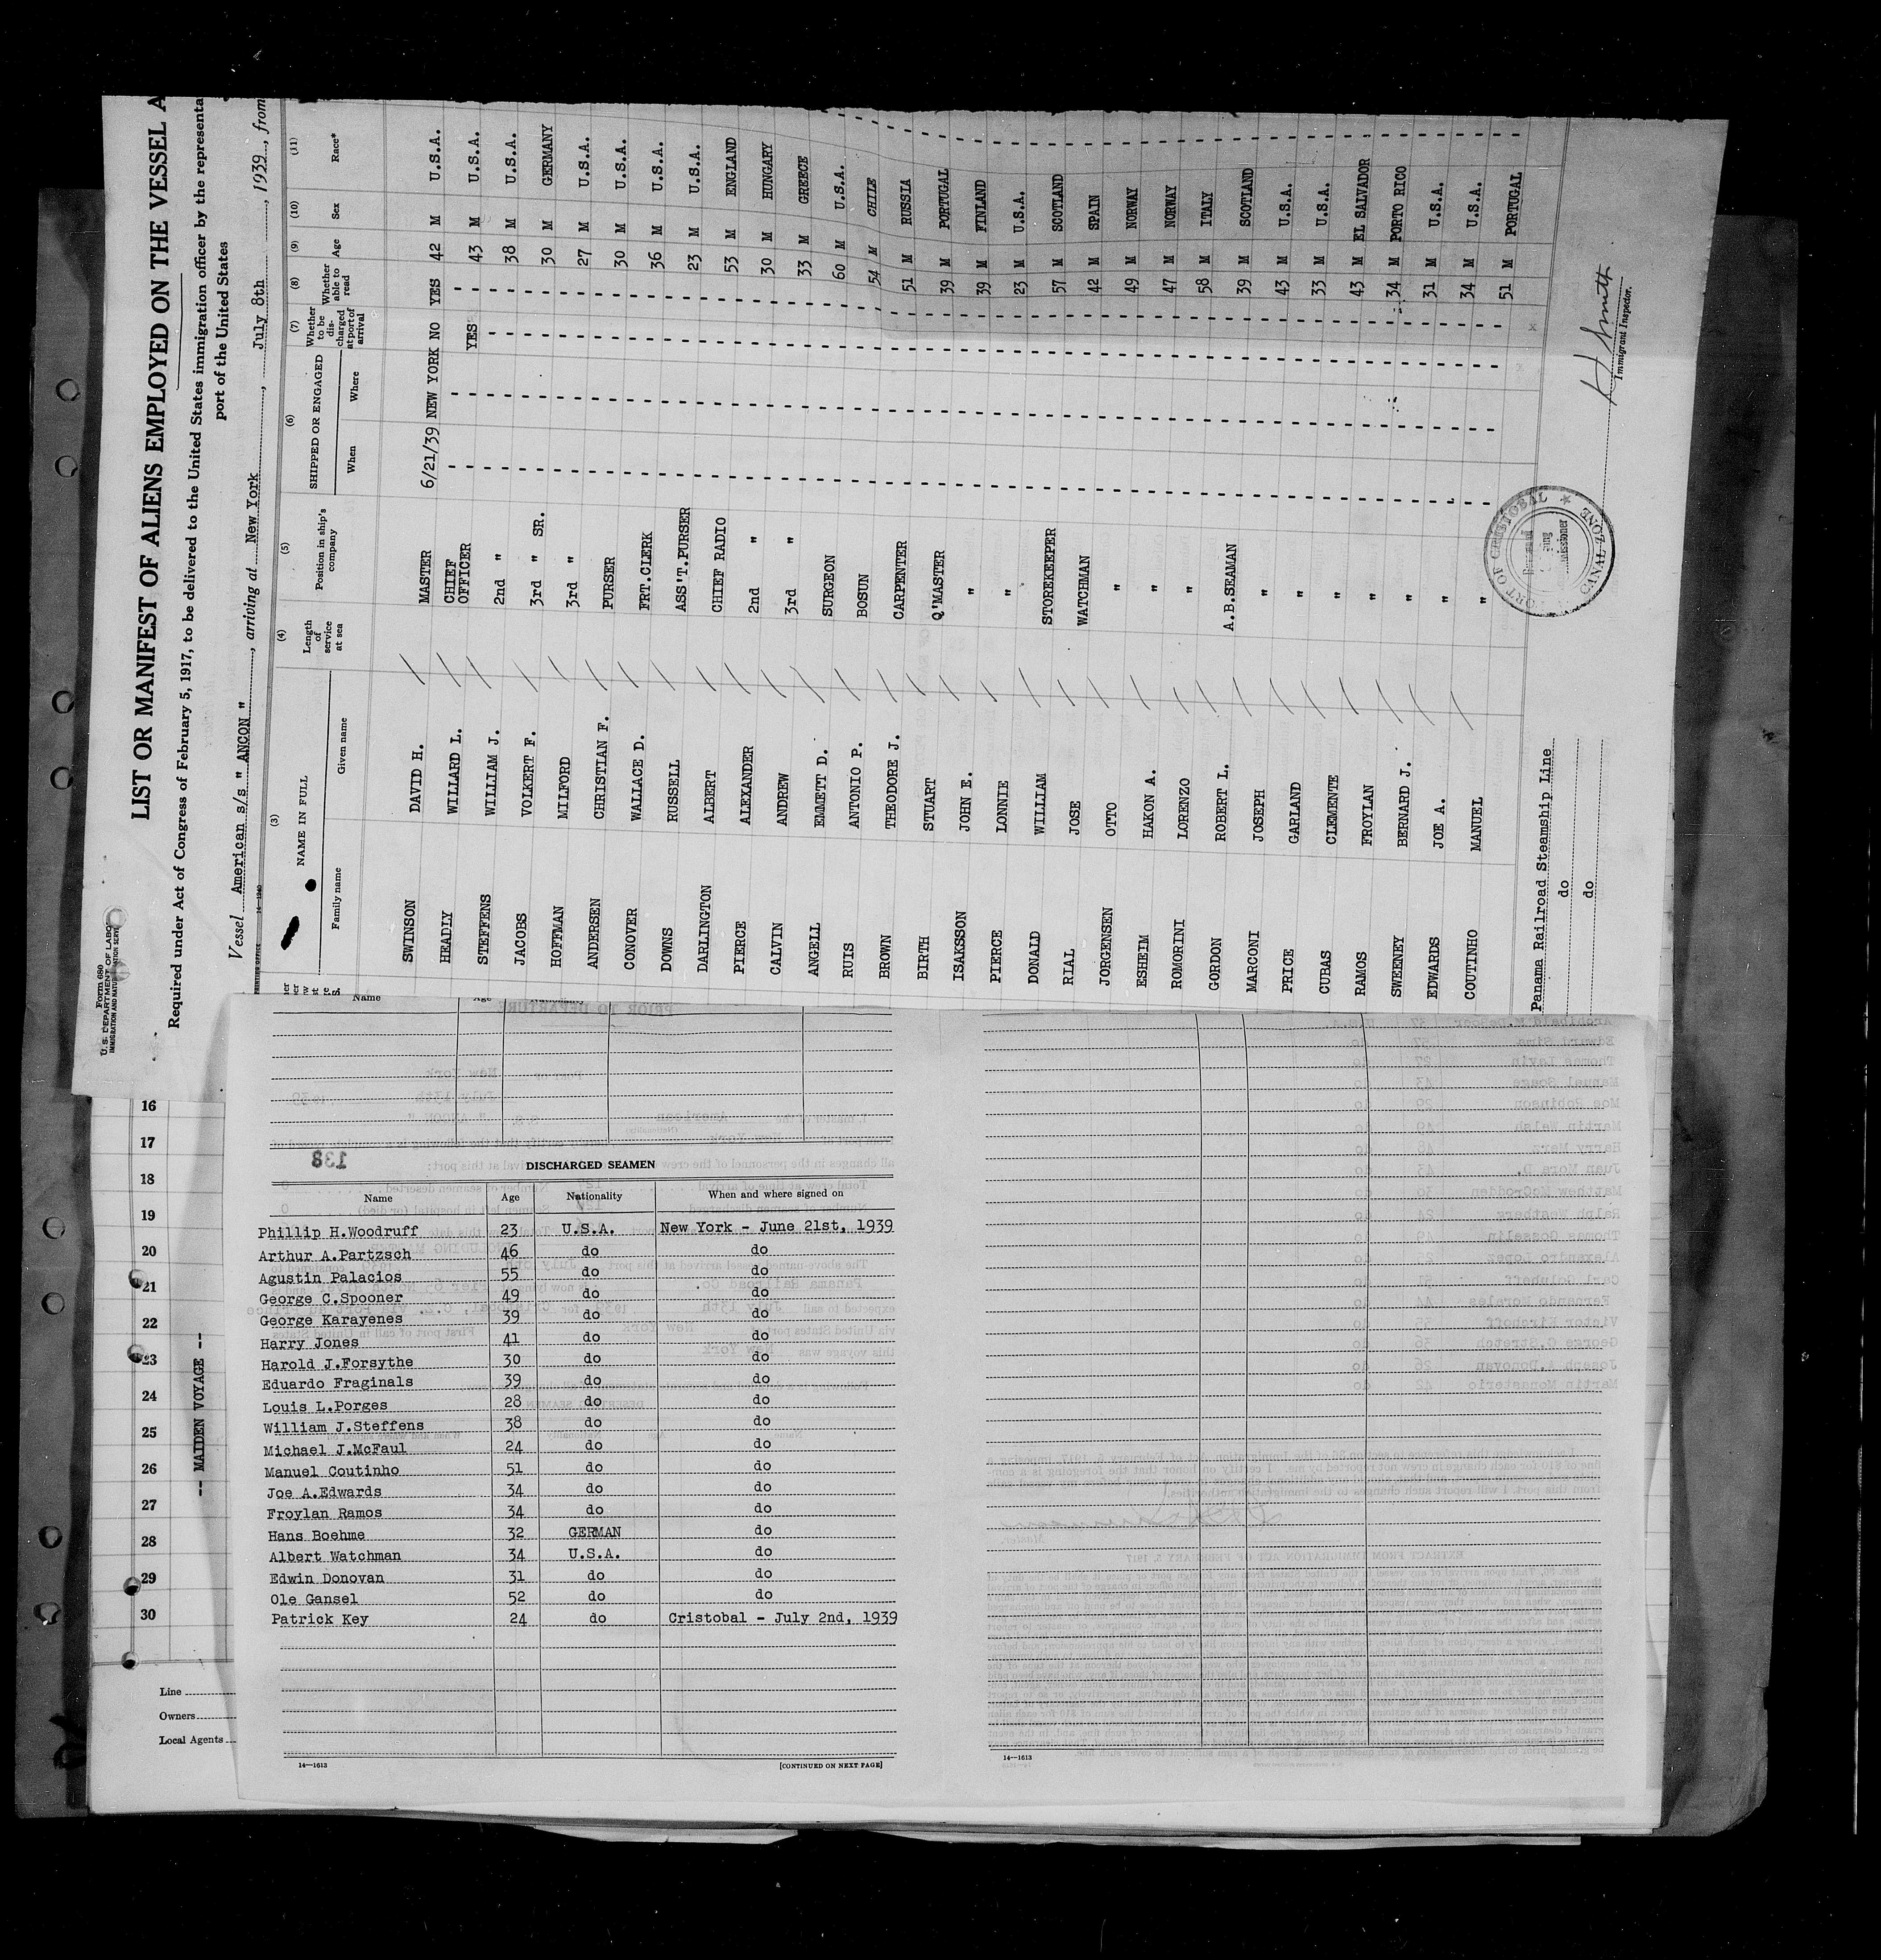 Form 680
U.S. DEPARTMENT OF LABOR
IMMIGRATION AND NATURALIZATION SERVICE
LIST OR MANIFEST OF ALIENS EMPLOYED ON THE VESSEL A
Required under Act of Congress of February 5, 1917, to be delivered to the United States immigration officer by the representa
port of the United States
Vessel American s/s " ANCON ", arriving at New York, July 8th, 1939, from
(3) (4) (5) (6) (7) (8) (9) (10) (11)
NAME IN FULL
Family name Given name
Length of service at sea
Position in ship's company
SHIPPED OR ENGAGED
When Where
Whether to be discharged at port of arrival
Whether able to read
Age
Sex
Race*
SWINSON DAVID H. MASTER 6/21/39 NEW YORK NO YES 42 M U.S.A.
HEADLY WILLARD L. CHIEF OFFICER - - YES - 43 M U.S.A.
STEFFENS WILLIAM J. 2nd " - - - - 38 M U.S.A.
JACOBS VOLKERT F. 3rd " SR. - - - - 30 M GERMANY
HOFFMAN MILFORD 3rd " - - - - 27 M U.S.A.
ANDERSEN CHRISTIAN F. PURSER - - - - 30 M U.S.A.
CONOVER WALLACE D. FRT.CLERK - - - - 36 M U.S.A.
DOWNS RUSSELL ASS'T.PURSER - - - - 23 M U.S.A.
DARLINGTON ALBERT CHIEF RADIO - - - - 53 M ENGLAND
PIERCE ALEXANDER 2nd " - - - - 30 M HUNGARY
CALVIN ANDREW 3rd " - - - - 33 M GREECE
ANGELL EMMETT D. SURGEON - - - - 60 M U.S.A.
RUIS ANTONIO P. BOSUN - - - - 54 M CHILE
BROWN THEODORE J. CARPENTER - - - - 51 M RUSSIA
BIRTH STUART Q'MASTER - - - - 39 M PORTUGAL
ISAKSSON JOHN E. " - - - - 39 M FINLAND
PIERCE LONNIE " - - - - 23 M U.S.A.
DONALD WILLIAM STOREKEEPER - - - - 57 M SCOTLAND
RIAL JOSE WATCHMAN - - - - 42 M SPAIN
JORGENSEN OTTO " - - - - 49 M NORWAY
ESHEIM HAKON A. " - - - - 47 M NORWAY
ROMORINI LORENZO " - - - - 58 M ITALY
GORDON ROBERT L. A.B.SEAMAN - - - - 39 M SCOTLAND
MARCONI JOSEPH " - - - - 43 M U.S.A.
PRICE GARLAND " - - - - 33 M U.S.A.
CUBAS CLEMENTE " - - - - 43 M EL SALVADOR
RAMOS FROYLAN " - - - - 34 M PORTO RICO
SWEENEY BERNARD J. " - - - - 31 M U.S.A.
EDWARDS JOE A. " - - - - 34 M U.S.A.
COUTINHO MANUEL " - - - - 51 M PORTUGAL
Panama Railroad Steamship Line
do
do
PORT OF CRISTOBAL
CANAL ZONE
H Smith
Immigrant Inspector.
16
17
18
19
20
21
22
23
24
25
26
27
28
29
30
-- MAIDEN VOYAGE --
Line
Owners
Local Agents
Name Age Nationality
DISCHARGED SEAMEN
Name Age Nationality When and where signed on
Phillip H.Woodruff 23 U.S.A. New York - June 21st, 1939
Arthur A.Partzsch 46 do do
Agustin Palacios 55 do do
George C.Spooner 49 do do
George Karayenes 39 do do
Harry Jones 41 do do
Harold J.Forsythe 30 do do
Eduardo Fraginals 39 do do
Louis L.Porges 28 do do
William J.Steffens 38 do do
Michael J.McFaul 24 do do
Manuel Coutinho 51 do do
Joe A.Edwards 34 do do
Froylan Ramos 34 do do
Hans Boehme 32 GERMAN do
Albert Watchman 34 U.S.A. do
Edwin Donovan 31 do do
Ole Gansel 52 do do
Patrick Key 24 do Cristobal - July 2nd, 1939
14—1613 [CONTINUED ON NEXT PAGE]
14—1613